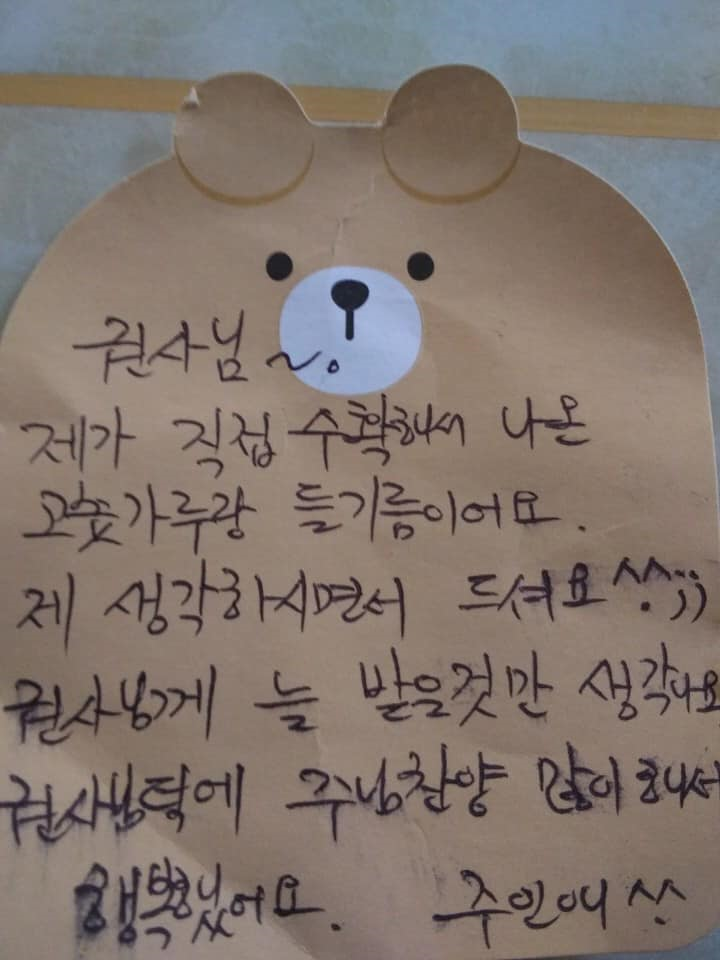 권사님~.
제가 직접 수확해서 나온
고춧가루랑 들기름이어요.
제 생각하시면서 드셔요^^;;
권사님께 늘 받은것만 생각나요
권사님덕에 주님찬양 많이 해서
행복했어요. 주인애 ^^